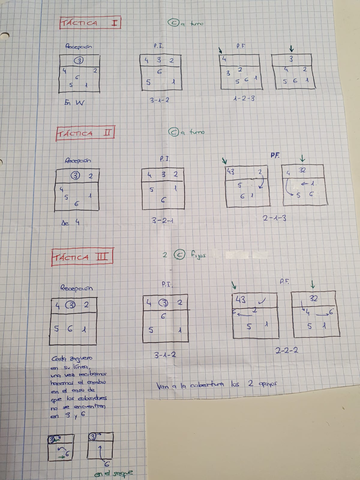 TÁCTICA I
C a turno
Recepción
P.I.
P.F
3
4 2
6
5 1
4 3 2
6
5 1
4
3 2
5 6 1
3
4 2
5 6 1
En W
3-1-2
1-2-3
TÁCTICA II
C a turno
Recepción
P.I.
P.F.
3 2
4
5 1
6
4 3 2
5 1
6
43 2
5
6 1
4 32
1
5 6
En 4
3-2-1
2-1-3
TÁCTICA III
2 C Fijos
Recepción
P.I.
P.F.
4 3 2
5 6 1
4 3 2
6
5 1
43
2
5 1
32
4 6
5 1
3-1-2
2-2-2
en su línea,
una vez
el cambio
que los colocadores
no se encuentren
en 3 y 6
Van a la cobertura los 2 apoyos
3
6
3
6
en el saque